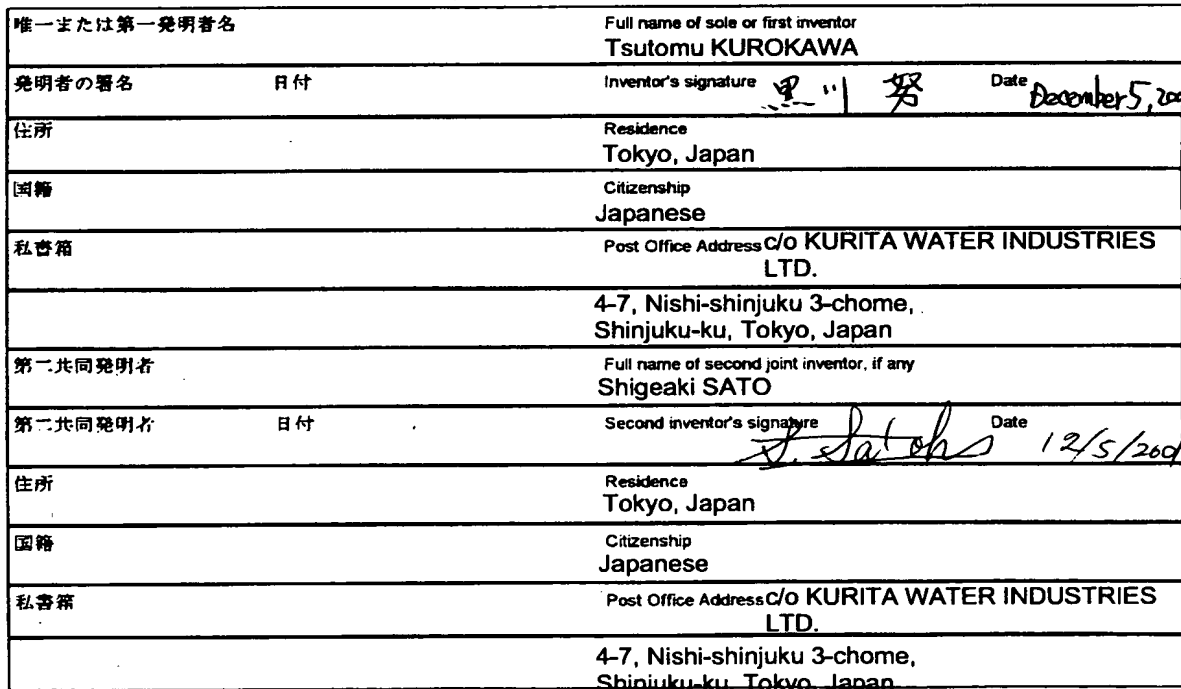 唯一または第一発明者名 Full name of sole or first inventor
Tsutomu KUROKAWA
発明者の署名 日付 Inventor's signature 黒川 努 Date December 5, 200
住所 Residence
Tokyo, Japan
国籍 Citizenship
Japanese
私書箱 Post Office Address c/o KURITA WATER INDUSTRIES
LTD.
4-7, Nishi-shinjuku 3-chome,
Shinjuku-ku, Tokyo, Japan
第二共同発明者 Full name of second joint inventor, if any
Shigeaki SATO
第二共同発明者 日付 Second inventor's signature S. Satoh Date 12/5/200
住所 Residence
Tokyo, Japan
国籍 Citizenship
Japanese
私書箱 Post Office Address c/o KURITA WATER INDUSTRIES
LTD.
4-7, Nishi-shinjuku 3-chome,
Shinjuku-ku, Tokyo, Japan